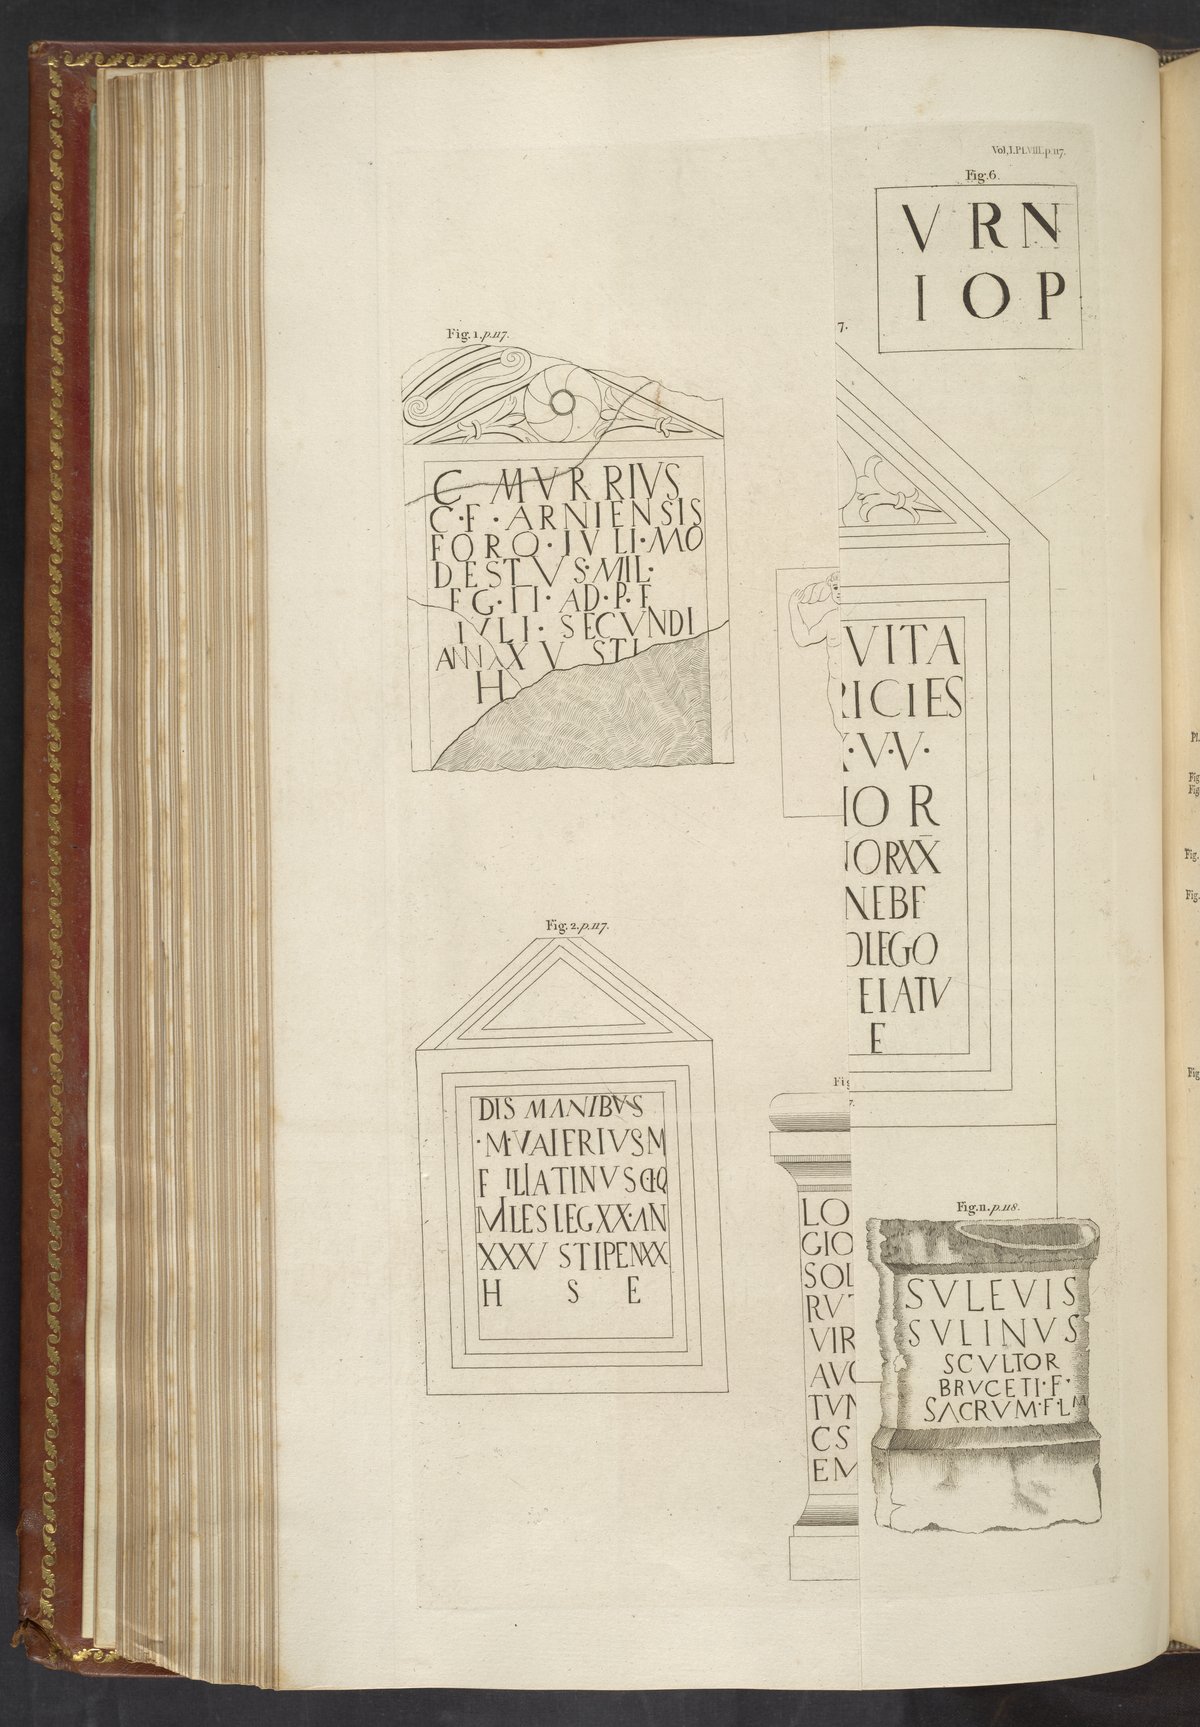 Vol, I. Pl. VIII. p. 117.
Fig. 6.
V R N
I O P
Fig. 1. p. 117.
C MVRRIVS
C·F·ARNIENSIS
FORO·IVLI·MO
DESTVS·MIL·
EG·II·AD·P·F
IVLI·SECVNDI
ANNXXV STI
H
7.
VITA
RICIES
·V·V·
OR
NORXX
NEBE
OLEGO
EIATV
E
Fig. 2. p. 117.
DIS MANIBVS
·M·VAIERIVSM
F ILIATINVS
MLES LEGXX·AN
XXXV STIPENXX
H S E
Fig
7.
LO
GIO
SOL
RVT
VIR
AVG
TVN
CS
EM
Fig. 11. p. 118.
SVLEVIS
SVLINVS
SCVLTOR
BRVCETI·F·
SACRVM·F·LM
Pl.
Fig
Fig
Fig.
Fig.
Fig